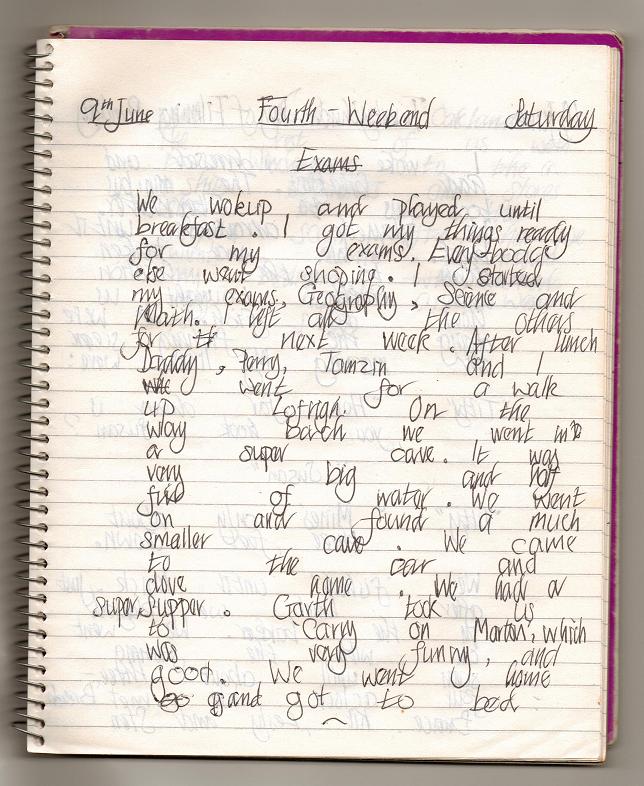 9th June Fourth - Weekend Saturday
Exams
We wokup and played until
breakfast. I got my things ready
for my exams. Everybody
else went shoping. I started
my exams, Geography, Science and
Math. I left all the others
for next week. After lunch
Daddy, Perry, Tamzin and I
went for a walk
up Lofrigh. On the
way back we went into
a super cave. It was
very big and half
full of water. We went
on and found a much
smaller cave. We came
to the car and
dove home. We had a
super, supper. Garth took us
to 'Carry on Marton', which
was very funny, and
good. We went home
and got to bed